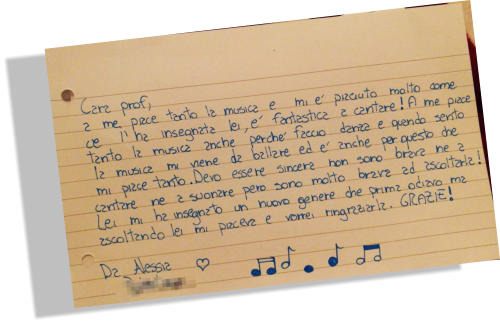 Cara prof,
a me piace tanto la musica e mi e' piaciuto molto come
ce l'ha insegnata lei, e' fantastica a cantare! A me piace
tanto la musica anche perche' faccio danza e quando sento
la musica mi viene da ballare ed e' anche per questo che
mi piace tanto. Devo essere sincera non sono brava ne a
cantare ne a suonare pero sono molto brava ad ascoltarla!
Lei mi ha insegnato un nuovo genere che prima odiavo ma
ascoltando lei mi piaceva e vorrei ringraziarla. GRAZIE!
Da Alessia